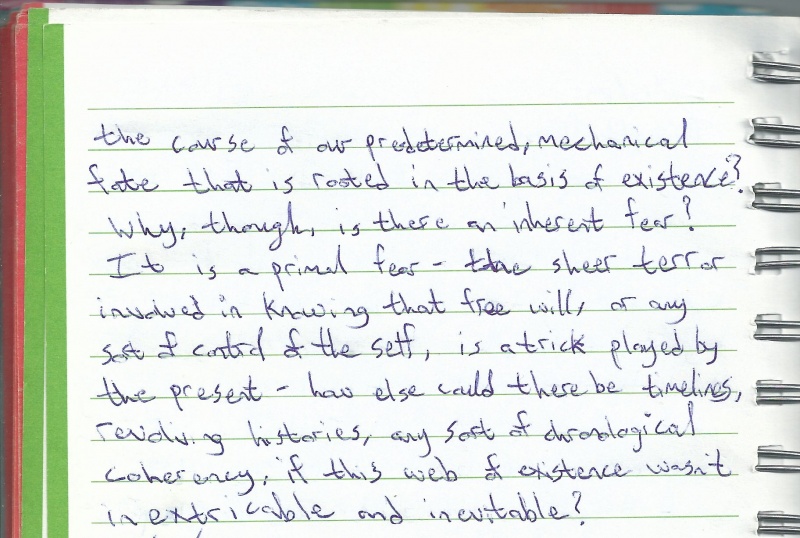 the course of our predetermined, mechanical
fate that is rooted in the basis of existence?
Why, though, is there an inherent fear?
It is a primal fear - the sheer terror
involved in knowing that free will, or any
sort of control of the self, is a trick played by
the present - how else could there be timelines,
revolving histories, any sort of chronological
coherency, if this web of existence wasn't
inextricable and inevitable?